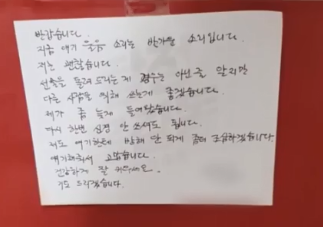 반갑습니다.
지금 애기 울음 소리는 반가운 소리입니다.
저는 괜찮습니다.
선물을 돌려 드리는게 경우는 아닌줄 알지만
다른 사람을 위해 쓰는게 좋겠습니다.
제가 좀 늦게 들어왔습니다.
다시 한번 신경 안 쓰셔도 됩니다.
저도 애기한테 방해 안 되게 좀더 조심하겠습니다.
얘기해줘서 고맙습니다.
건강하게 잘 키우세요.
기도 드리겠습니다.